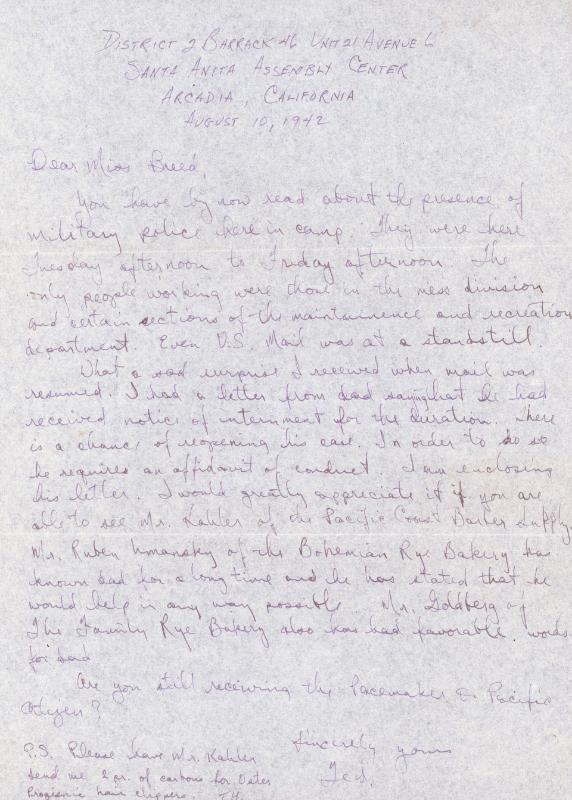 DISTRICT 2 BARRACK 46 UNIT 21 AVENUE 6
SANTA ANITA ASSEMBLY CENTER
ARCADIA, CALIFORNIA
AUGUST 10, 1942
Dear Miss Breed,
You have by now read about the presence of
military police here in camp. They were here
Tuesday afternoon to Friday afternoon. The
only people working were those in the mess division
and certain sections of the maintainence and recreation
department. Even U.S. Mail was at a standstill.
What a sad surprise I received when mail was
resumed. I had a letter from dad saying that he had
received notice of internment for the duration. There
is a chance of reopening his case. In order to do so
he requires an affidavit of conduct. I am enclosing
his letter. I would greatly appreciate it if you are
able to see Mr. Kahler of the Pacific Coast Barber Supply.
Mr. Ruben Umansky of the Bohemian Rye Bakery has
known dad for a long time and he has stated that he
would help in any way possible. Mr. Goldberg of
The Family Rye Bakery also has had favorable words
for dad
Are you still receiving the Pacemaker & Pacific
Citizen?
Sincerely yours
Ted.
P.S. Please have Mr. Kahler
send me 2 pr. of carbons for Oster
Progienic hair clippers. T.H.